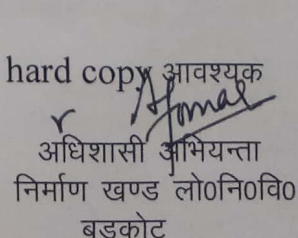 hard copy आवश्यक
अधिशासी अभियन्ता
निर्माण खण्ड लो0नि0वि0
बडकोट